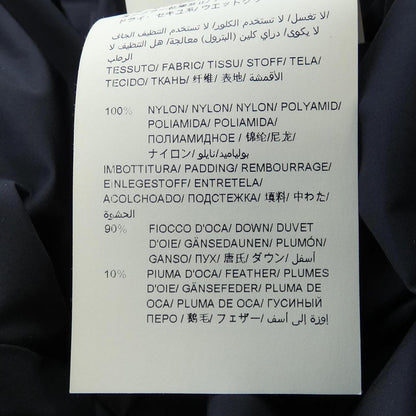 ドライ/ セキユ系/ ウエットクリ
لا تغسل/ لا تستخدم الكلور/ لا تستخدم التنظيف الجاف/
لا يكوى/ دراي كلين (البترول) معالجة/ هل التنظيف لا
الرطب
TESSUTO/ FABRIC/ TISSU/ STOFF/ TELA/
TECIDO/ ТКАНЬ/ 纤维/ 表地/ الأقمشة
100% NYLON/ NYLON/ NYLON/ POLYAMID/
POLIAMIDA/ POLIAMIDA/
ПОЛИАМИДНОЕ / 锦纶/尼龙/
ナイロン/ بولياميد/نايلو
IMBOTTITURA/ PADDING/ REMBOURRAGE/
EINLEGESTOFF/ ENTRETELA/
ACOLCHOADO/ ПОДСТЕЖКА/ 填料/ 中わた/
الحشوة
90% FIOCCO D'OCA/ DOWN/ DUVET
D'OIE/ GÄNSEDAUNEN/ PLUMÓN/
GANSO/ ПУХ/ 唐氏/ ダウン/ أسفل
10% PIUMA D'OCA/ FEATHER/ PLUMES
D'OIE/ GÄNSEFEDER/ PLUMA DE
OCA/ PLUMA DE OCA/ ГУСИНЫЙ
ПЕРО/ 鹅毛/ フェザー/ إوزة إلى أسف